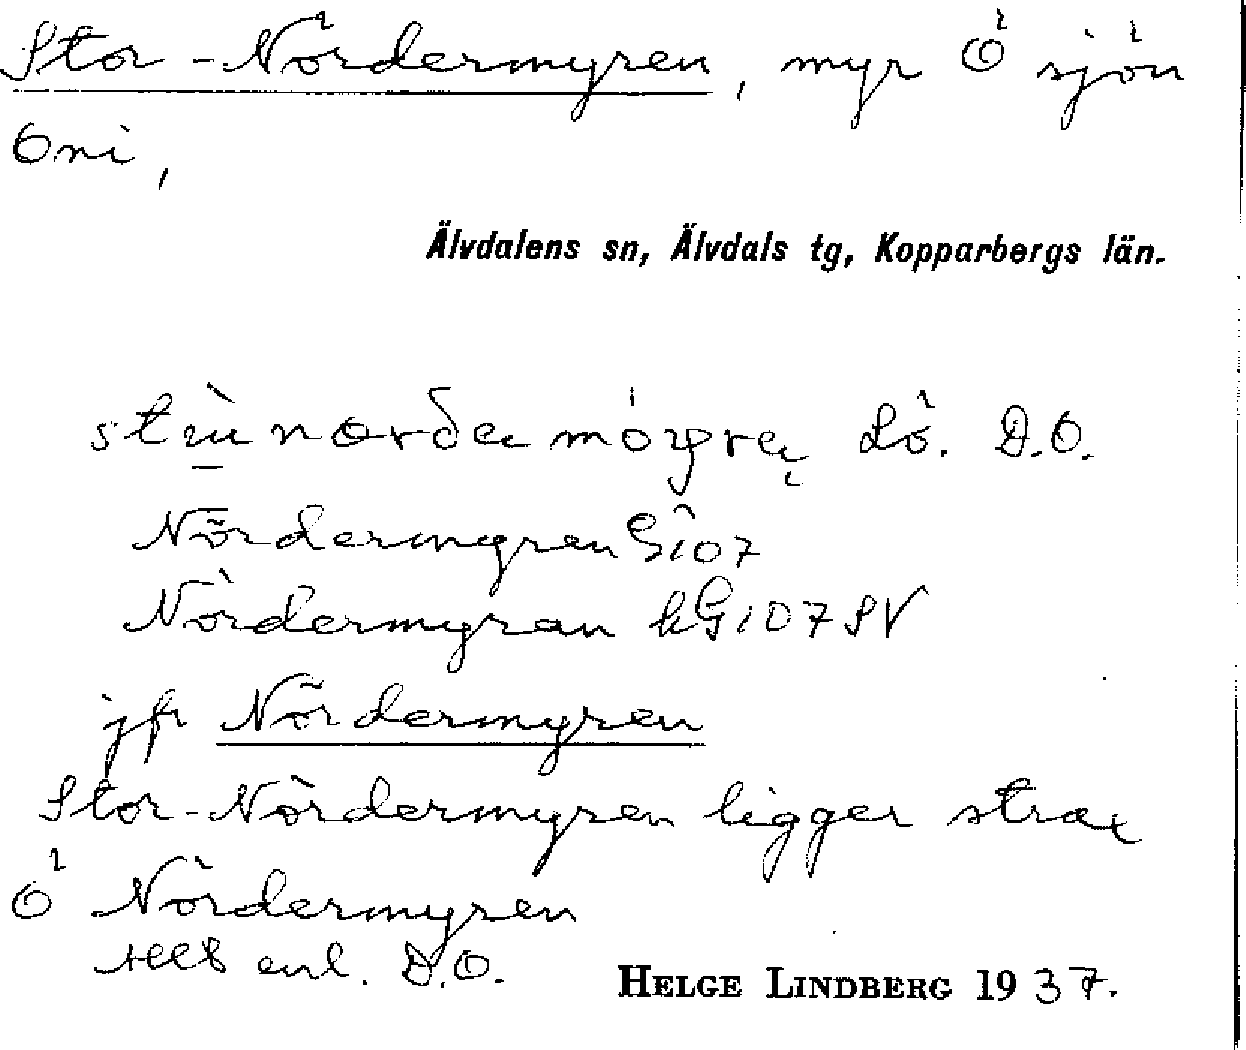 Stor-Nördermyren, myr Ö sjön
Öni,
Älvdalens sn, Älvdals tg, Kopparbergs län.
Lö. D.O.
Nördermyren G107
Nördermyran hG107 SV
jfr Nördermyren
Stor-Nördermyren ligger strax
Ö Nördermyren
allt enl. D.O.
HELGE LINDBERG 1937.